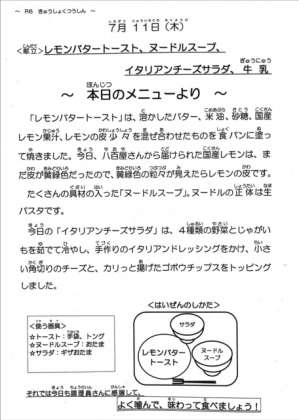 ～ R6 きゅうしょくつうしん ～
7月11日(木)
<献立>レモンバタートースト、ヌードルスープ、
イタリアンチーズサラダ、牛乳
～ 本日のメニューより ～
「レモンバタートースト」は、溶かしたバター、米油、砂糖、国産
レモン果汁、レモンの皮少々を混ぜ合わせたものを食パンに塗っ
て焼きました。今日、八百屋さんから届けられた国産レモンは、ま
だ皮が黄緑色だったので、黄緑色の粒々が見えたらレモンの皮です。
たくさんの具材の入った「ヌードルスープ」。ヌードルの正体は生
パスタです。
今日の「イタリアンチーズサラダ」は、4種類の野菜とじゃがい
もを茹でて冷やし、手作りのイタリアンドレッシングをかけ、小さ
い角切りのチーズと、カリっと揚げたゴボウチップスをトッピング
しました。
<使う器具>
☆トースト:手袋、トング
☆ヌードルスープ:おたま
☆サラダ:ギザおたま
<はいぜんのしかた>
サラダ
レモンバター
トースト
ヌードル
スープ
それでは今日も調理員さんに感謝して、
よく噛んで、味わって食べましょう!